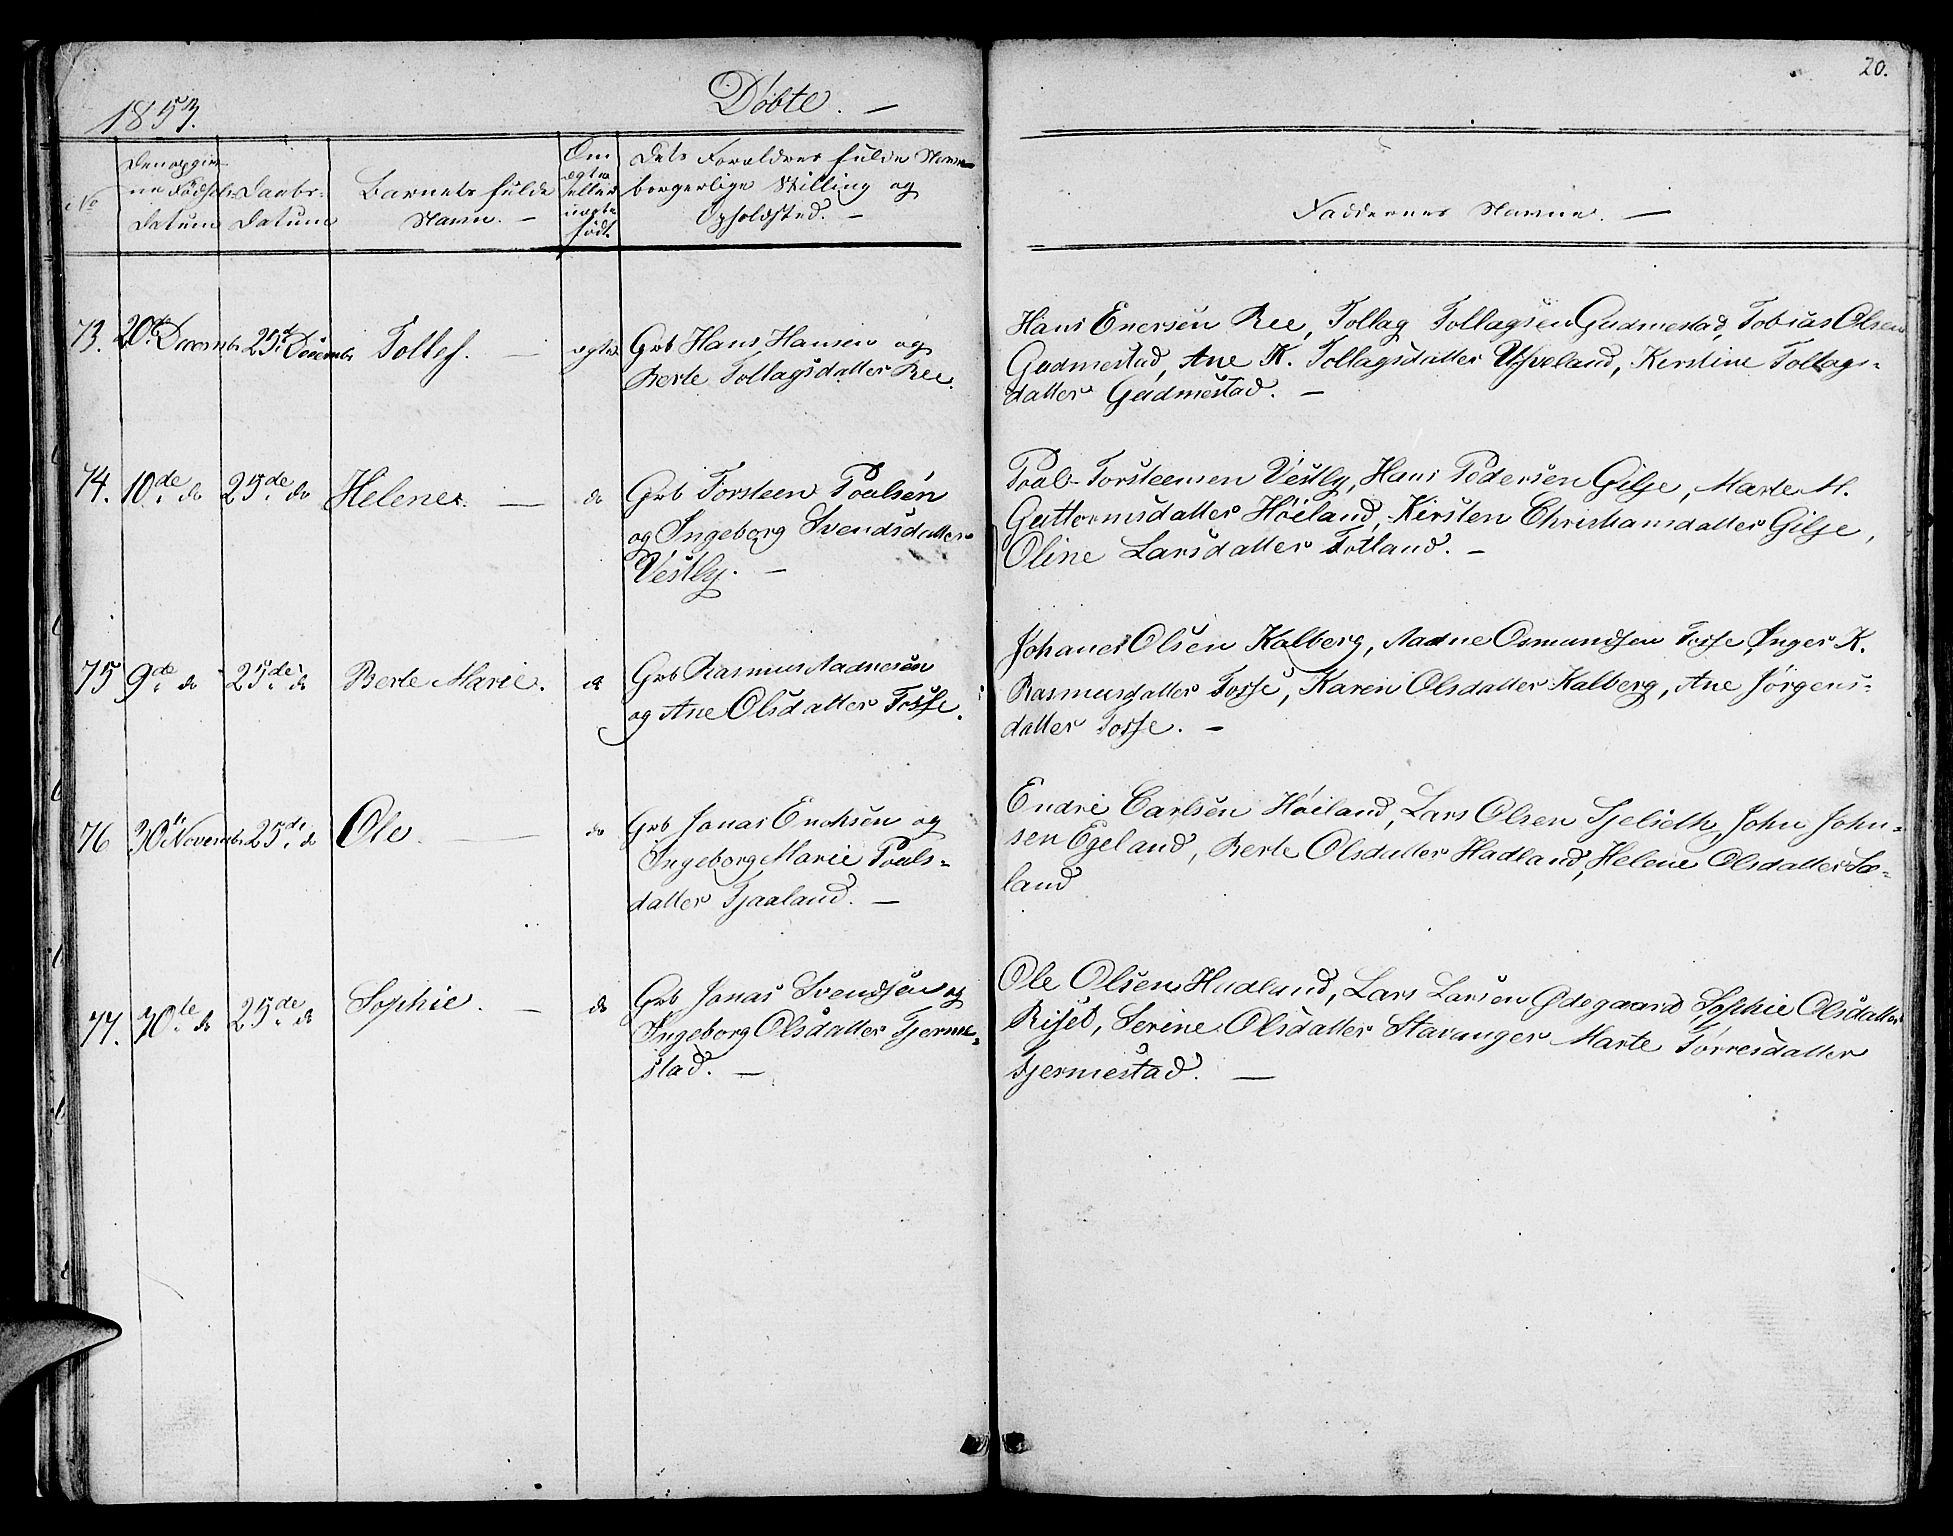 20.
1853.
Døbte. —
No
Den opgiv-
ne Fødsels-
Datum
Daabs-
Datum
Barnets fulde
Navn. —
Om
ægte
eller
uægte
født.
Dets Forældres fulde Navn
borgerlige Stilling og
Opholdsted. —
Faddernes Navne. —
73. 20de Decembr 25de Decembr Tollef. — ægte
Grb Hans Hansen og
Berte Tollagsdatter Ree.
Hans Enersen Ree, Tollag Tollagsen Gudmestad, Tobias Olsen
Gudmestad, Ane K. Tollagsdatter Udsveland, Kirstine Tollags-
datter Gudmestad. —
74. 10de do 25de do Helene. — do
Grb Torsteen Poulsen
og Ingeborg Svendsdatter
Vestly. —
Poul Torsteensen Vestly, Hans Pedersen Gilje, Marte M.
Guttormsdatter Høiland, Kirsten Christiansdatter Gilje,
Oline Larsdatter Totland. —
75 9de do 25de do Berte Marie. do
Grb Rasmus Aadnesen
og Ane Olsdatter Fosse.
Johanes Olsen Kalberg, Aadne Osmundsen Fosse, Inger K.
Rasmusdatter Fosse, Karen Olsdatter Kalberg, Ane Jørgens-
datter Fosse. —
76 30te Novembr 25de do Ole. — do
Grb Jonas Enoksen og
Ingeborg Marie Pouls-
datter Tjaaland. —
Endre Carlsen Høiland, Lars Olsen Tjelseth, John John-
sen Egeland, Berte Olsdatter Hadland, Helene Olsdatter Sæ-
land
77. 30te do 25de do Sophie. — do
Grb Jonas Svendsen og
Ingeborg Olsdatter Tjerme-
stad. —
Ole Olsen Hadland, Lars Larsen Ødegaard Sophie Olsdatter
Riset, Serine Olsdatter Stavanger Marte Torresdatter
Tjermestad. —